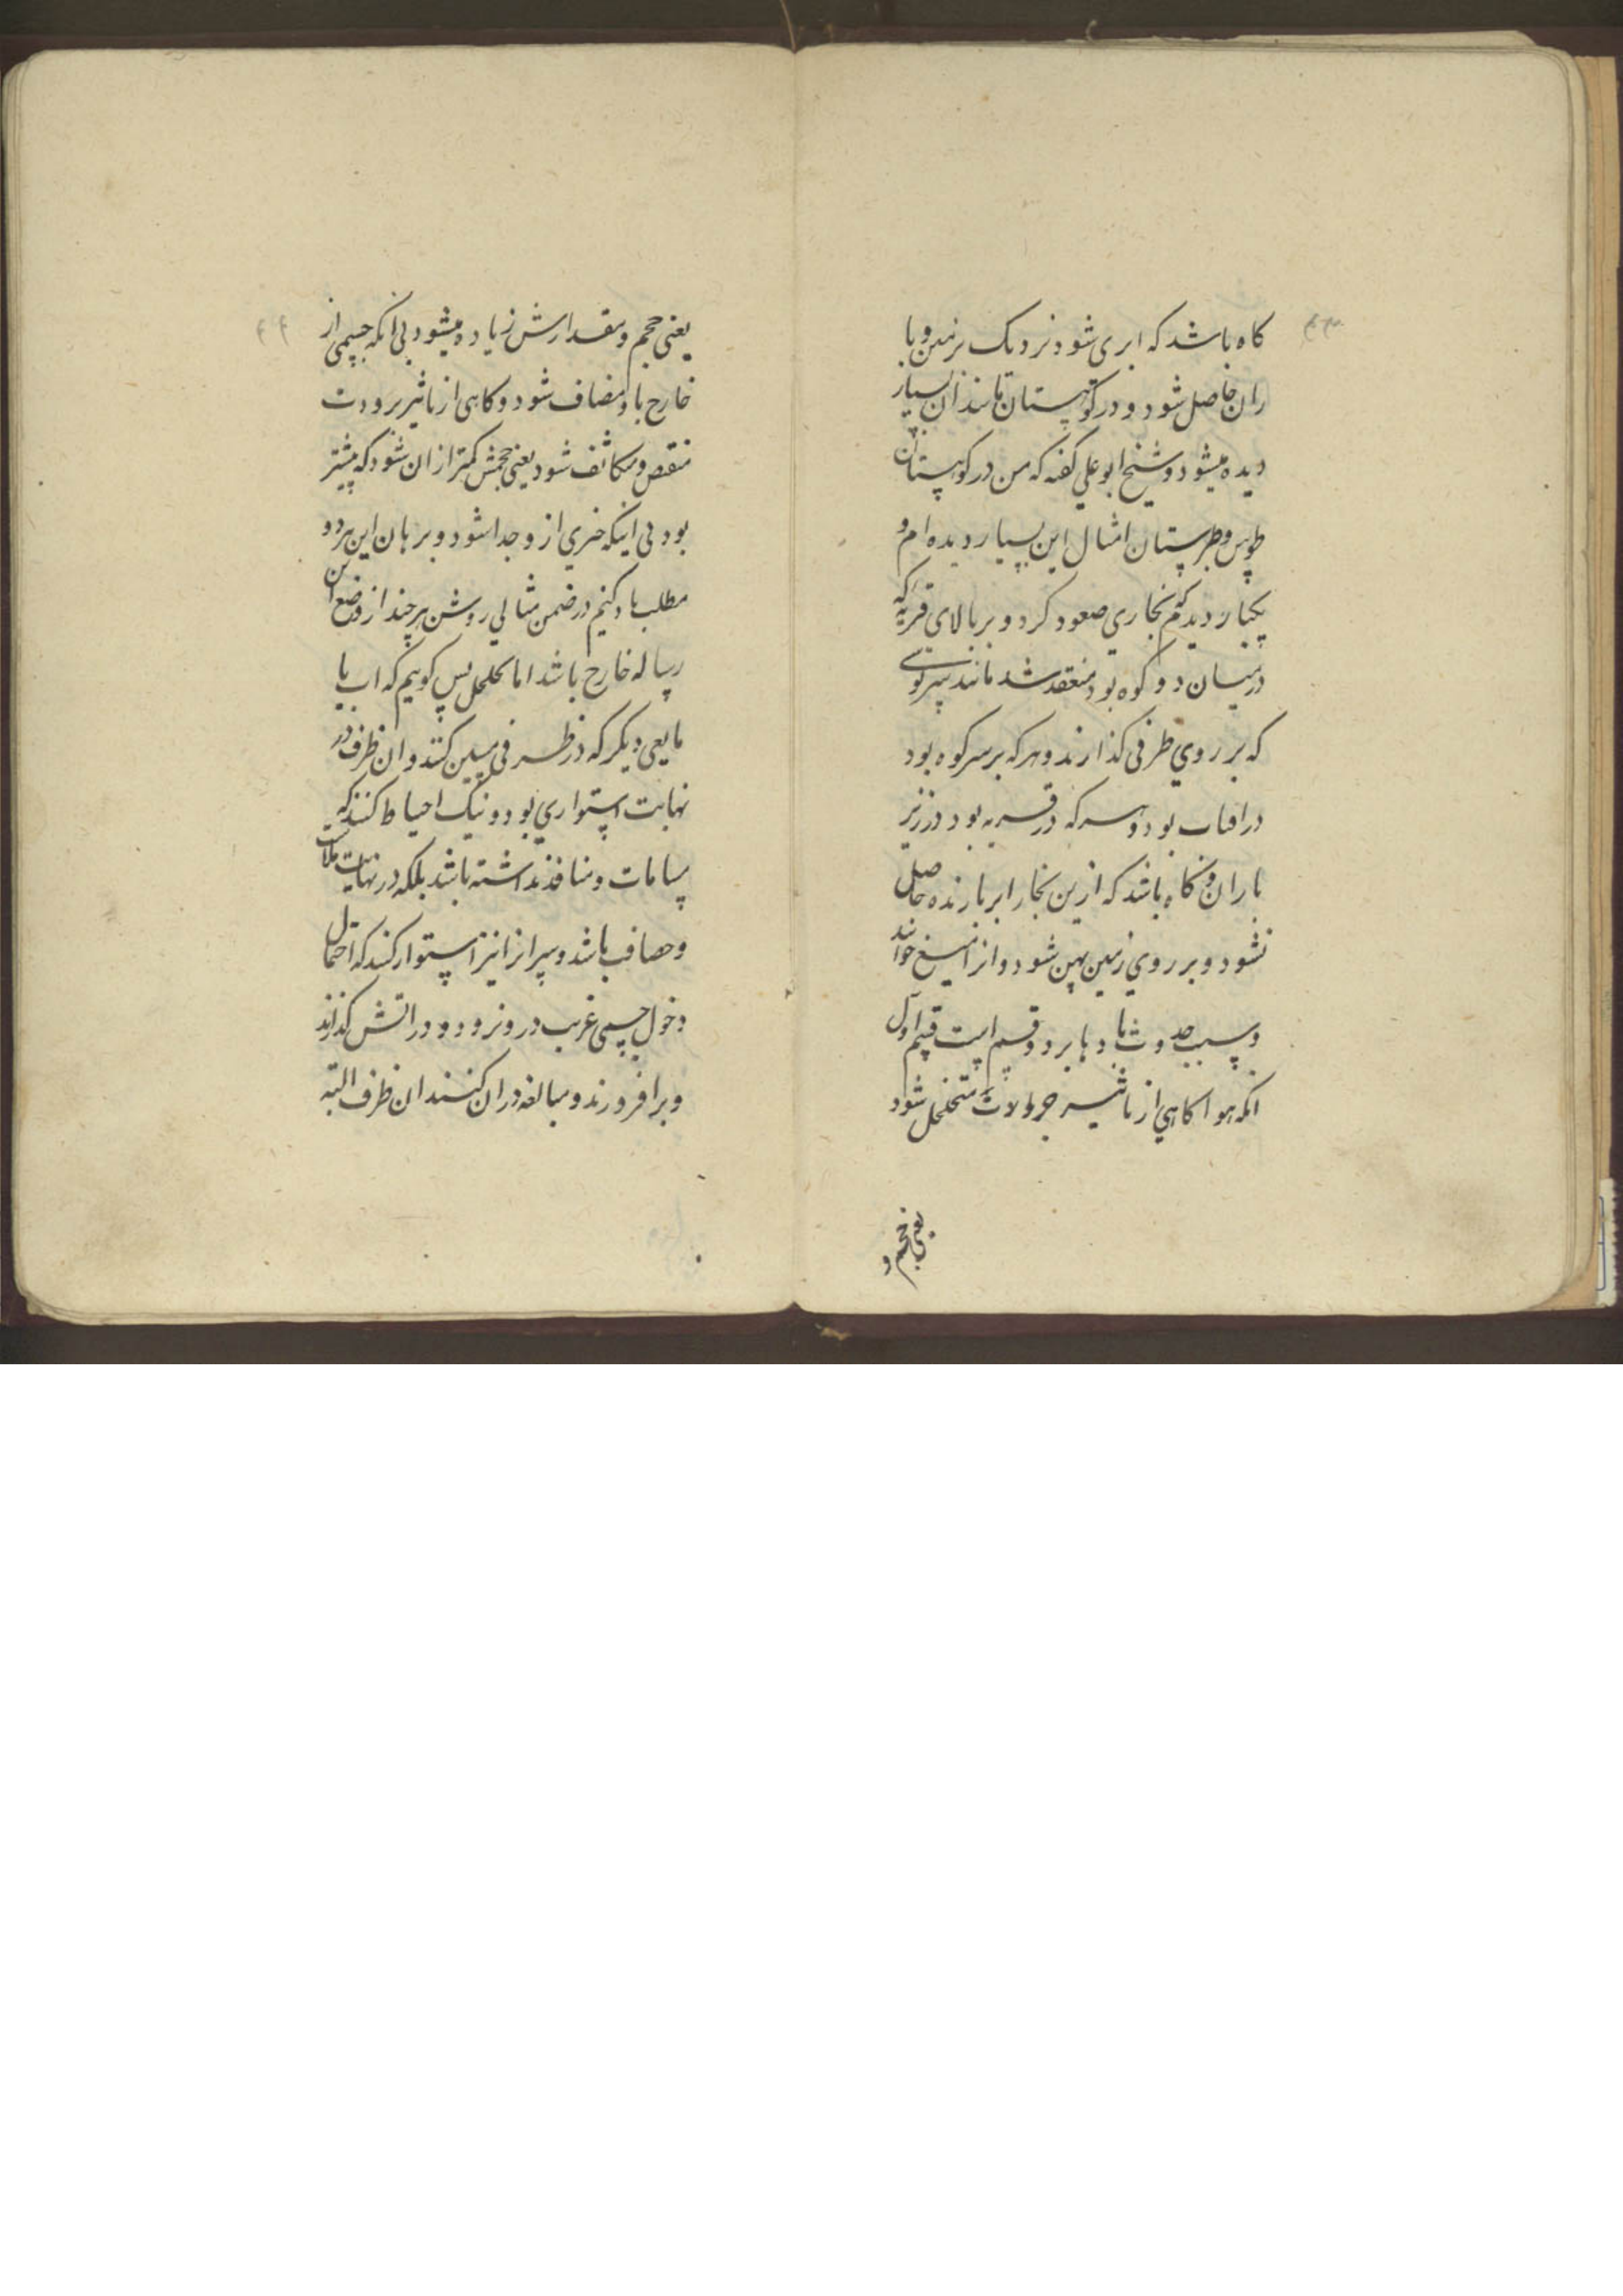 ۴۳
کاه باشد که ابری شود نزدیک بزمین و با
ران حاصل شود و در کوهستان مانند آن بسیار
دیده میشود و شیخ ابو علی کفته که من در کوهستان
طوس و طبرستان امثال این بسیار دیده ام و
یکبار دیدم که بخاری صعود کرد و بر بالای قریه که
در میان دو کوه بود منعقد شد مانند سرپوشی
که بر روی ظرفی کذارند و هر که بر سر کوه بود
در افتاب بود و هر که در قریه بود در زیر
باران و کاه باشد که ازین بخار ابر بارنده حاصل
نشود و بر روی زمین پهن شود و انرا میغ خوانند
و سبب حدوث بادها بر دو قسم است قسم اول
انکه هوا کاهی از تاثیر متخلخل شود
یعنی حجم و
۴۴
یعنی حجم و مقدارش زیاده میشود بی انکه جسمی از
خارج باو مضاف شود و کاهی از تاثیر برودت
منقص و متکاثف شود یعنی حجمش کمتر از ان شود که پیشتر
بود بی اینکه جزی ازو جدا شود و برهان این هر دو
مطلب یاد کنیم در ضمن مثالی روشن هر چند از وضع این
رساله خارج باشد اما تخلخل پس کوییم که اب یا
مایعی دیکر که در ظرفی کنند و ان ظرف در
نهایت استواری بود و نیک احتیاط کنند که
مسامات و منافذ نداشته باشد بلکه در نهایت
و باشد و سر انرا نیز استوار کنند که احتمال
دخول جسمی غریب درو نرود و در اتش کذارند
و برافروزند و مبالغه در ان کنند ان ظرف البته